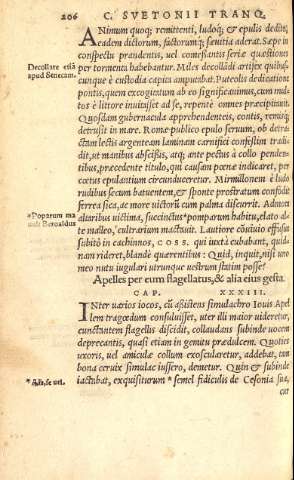 206 C. SVETONII TRANQ.
ANimum quoq; remittenti, ludoq; & epulis dedito,
eadem dictorum, factorumq; sæuitia aderat. Sæpe in
conspectu prandentis, uel comessantis seriæ quæstiones
Decollare etiā per tormenta habebantur. Miles decollādi artifex quibus
apud Senecam. cunque è custodia capita amputabat. Puteolis dedicatione
pontis, quem excogitatum ab eo significauimus, cum mul
tos è littore inuitasset ad se, repente omnes præcipitauit.
Quosdam gubernacula apprehendenteis, contis, remisq;
detrusit in mare. Romæ publico epulo seruum, ob detra
ctam lectis argenteam laminam carnifici confestim tradi
dit, ut manibus abscißis, atq; ante pectus à collo penden
tibus, præcedente titulo, qui causam poenæ indicaret, per
coetus epulantium circunduceretur. Mirmillonem è ludo
rudibus secum batuentem, & sponte prostratum confodit
ferrea sica, ac more uictorū cum palma discurrit. Admota
*Poparum ma altaribus uictima, succinctus *pomparum habitu, elato al
uult Beroaldus te malleo, cultrarium mactauit. Lautiore cōuiuio effusus
subitò in cachinnos, COSS. qui iuxtà cubabant, quid-
nam rideret, blandè quærentibus: Quid, inquit, nisi uno
meo nutu iugulari utrunque uestrum statim posse?
Apelles per eum flagellatus, & alia eius gesta.
CAP. XXXIII.
INter uarios iocos, cū aßistens simulachro Iouis Apel
lem tragœdum consuluisset, uter illi maior uideretur,
cunctantem flagellis discidit, collaudans subinde uocem
deprecantis, quasi etiam in gemitu prædulcem. Quoties
uxoris, uel amiculæ collum exoscularetur, addebat, tam
bona ceruix simulac iussero, demetur. Quin & subinde
iactabat, exquisiturum *semel fidiculis de Cesonia sua,
cur